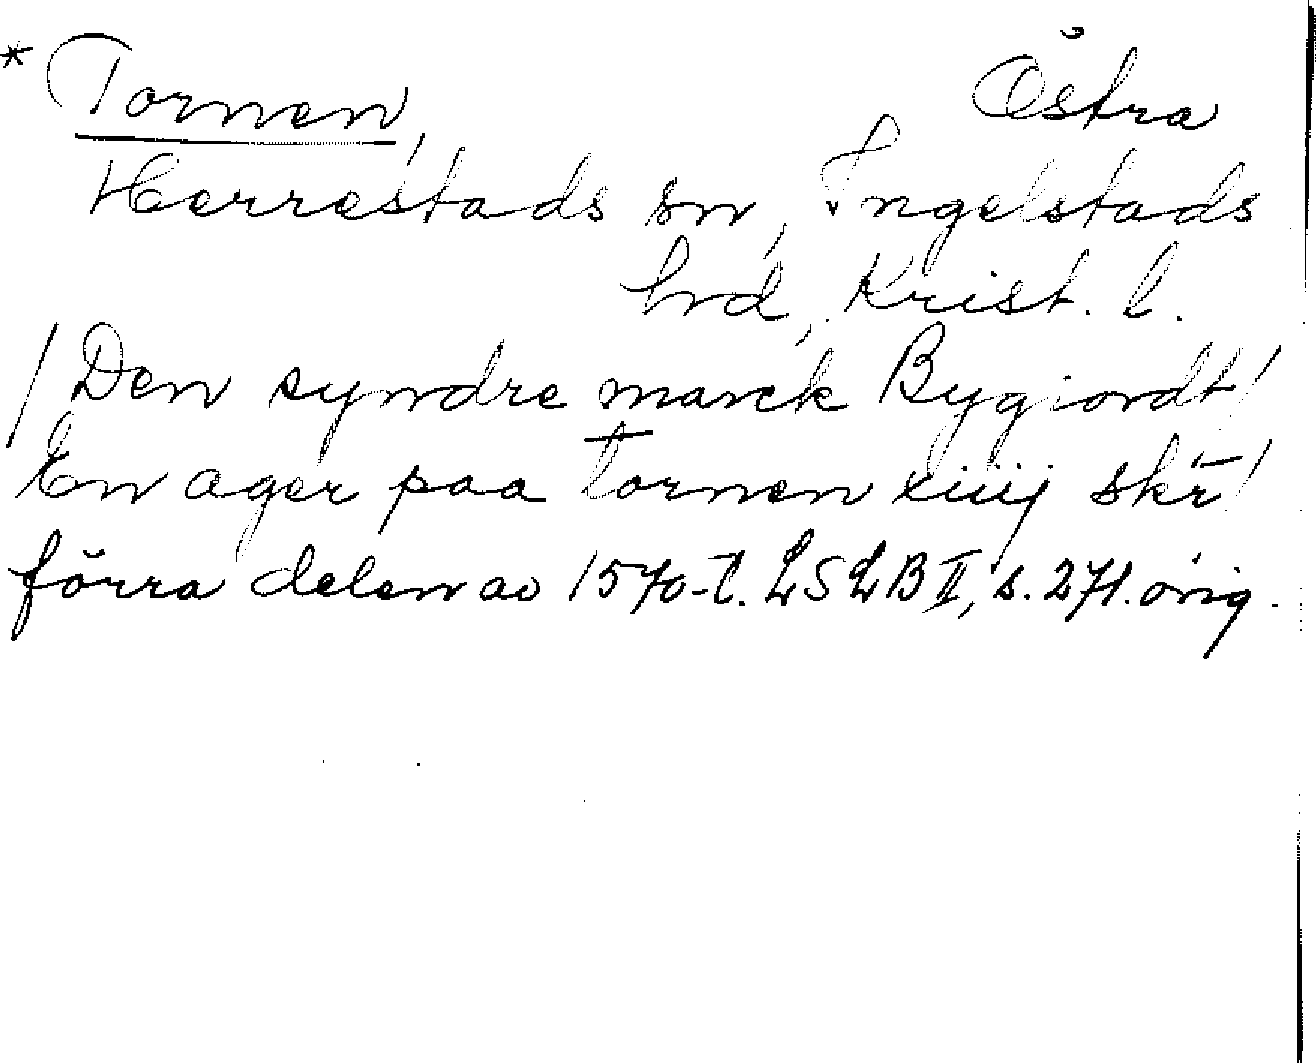 * Tornen, Östra
Herrestads sn, Ingelstads
hd, Krist. l.
/Den syndre marck Bygiordt/
En ager paa tornen xiiij skr̄/
förra delen av 1570-t. LSLB II, s. 271. orig.